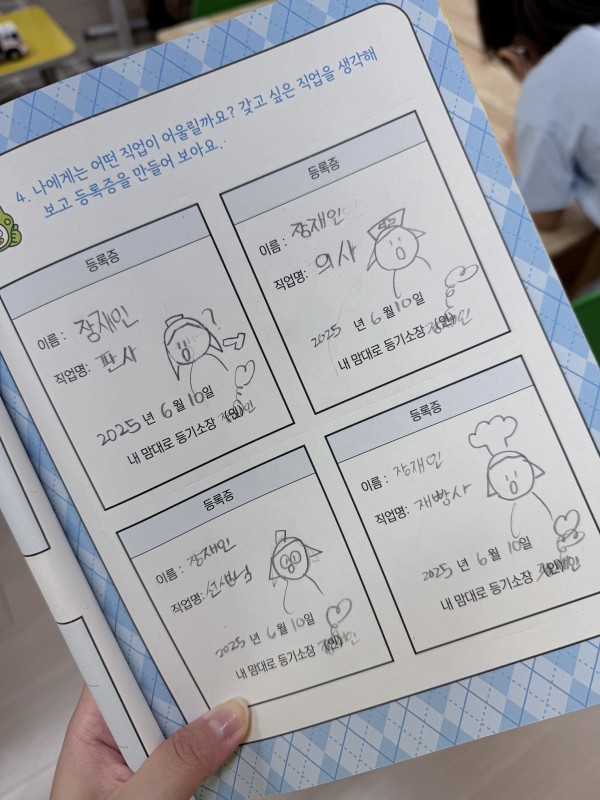 4. 나에게는 어떤 직업이 어울릴까요? 갖고 싶은 직업을 생각해
보고 등록증을 만들어 보아요.
등록증
이름 : 장재인
직업명: 판사
?
2025 년 6 월 10 일
내 맘대로 등기소장 (인)
등록증
이름 : 장재인
직업명: 의사
2025 년 6 월 10 일
내 맘대로 등기소장 (인)
등록증
이름 : 장재인
직업명: 선생님
2025 년 6 월 10 일
내 맘대로 등기소장 (인)
등록증
이름 : 장재인
직업명: 재빵사
2025 년 6 월 10 일
내 맘대로 등기소장 (인)